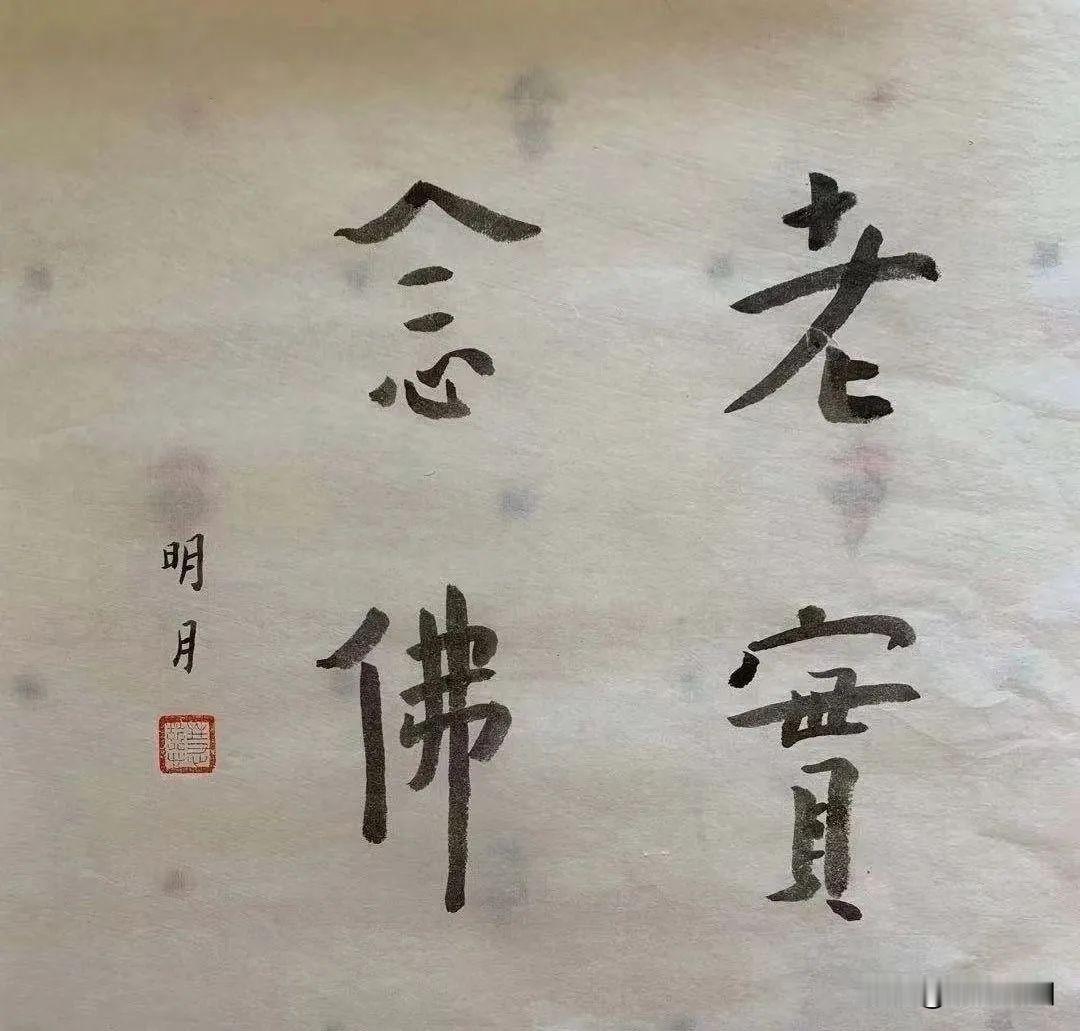 老實
念佛
明月